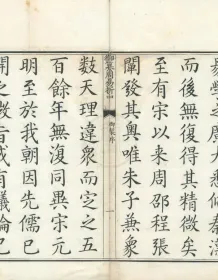 而後無復得其精微矣
至有宋以來周邵程張
闡發其奧唯朱子兼象
御纂周易折中
數天理違衆而定之五
百餘年無復同異宋元
明至於我朝因先儒已
開之　旨或有議論已